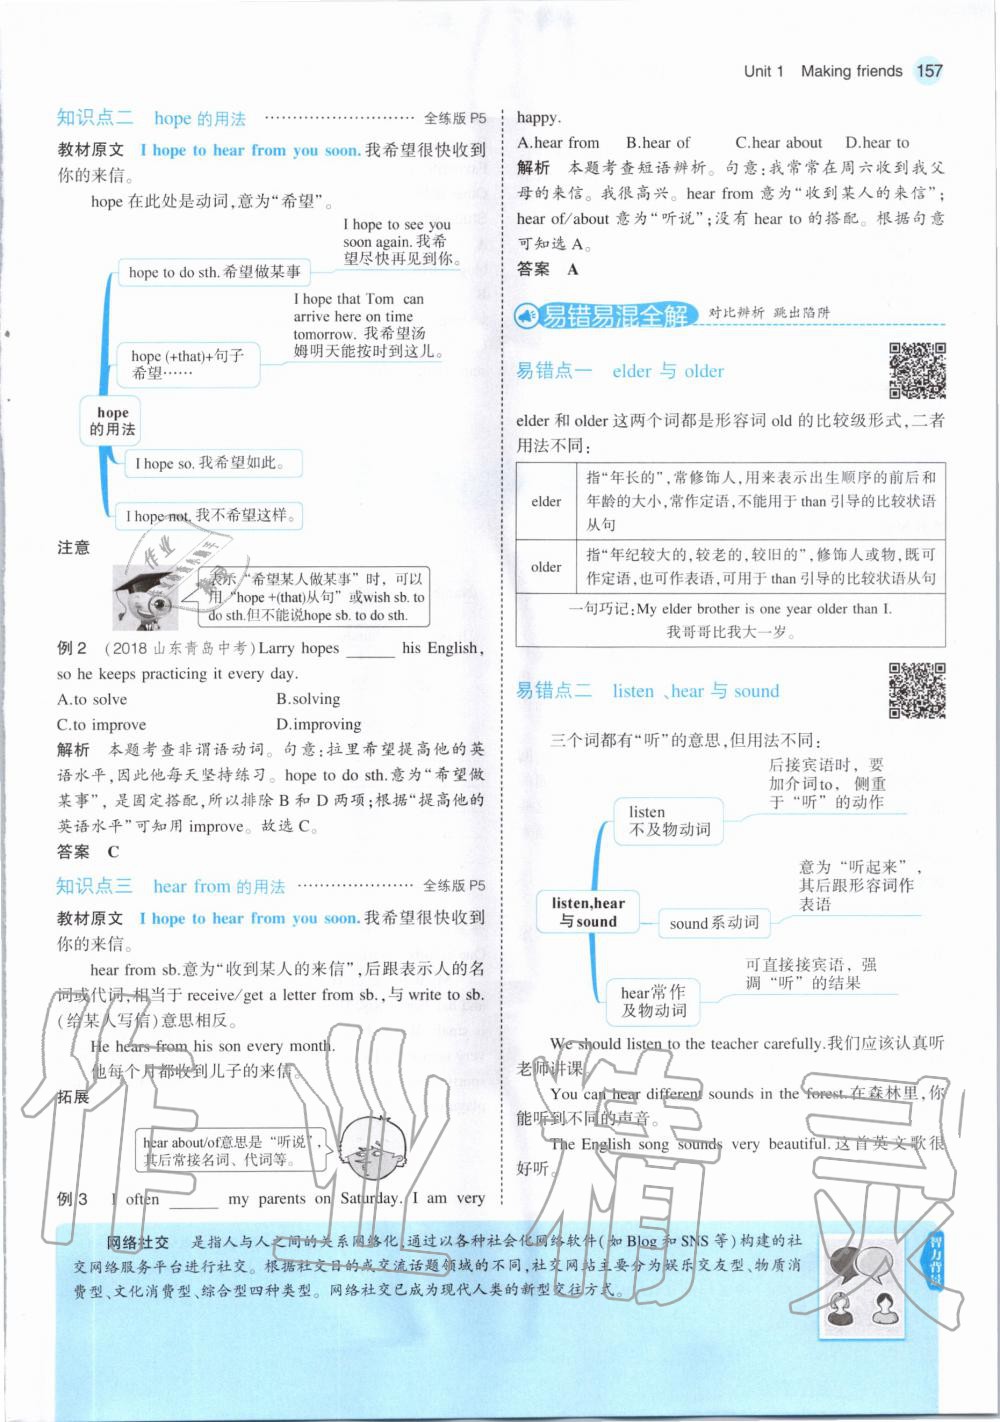 Unit 1 Making friends 157
知识点二 hope 的用法 ………………………… 全练版 P5
教材原文 I hope to hear from you soon.我希望很快收到
你的来信。
hope 在此处是动词,意为“希望”。
I hope to see you
soon again.我希
望尽快再见到你。
hope to do sth.希望做某事
I hope that Tom can
arrive here on time
tomorrow. 我希望汤
姆明天能按时到这儿。
hope (+that)+句子
希望……
hope
的用法
I hope so.我希望如此。
I hope not.我不希望这样。
注意
表示“希望某人做某事”时，可以
用“hope +(that)从句”或wish sb. to
do sth.但不能说hope sb. to do sth.
例 2 (2018 山东青岛中考)Larry hopes ______ his English,
so he keeps practicing it every day.
A.to solve B.solving
C.to improve D.improving
解析 本题考查非谓语动词。句意:拉里希望提高他的英
语水平,因此他每天坚持练习。hope to do sth.意为“希望做
某事”, 是固定搭配,所以排除 B 和 D 两项;根据“提高他的
英语水平”可知用 improve。故选 C。
答案 C
知识点三 hear from 的用法 ………………… 全练版 P5
教材原文 I hope to hear from you soon.我希望很快收到
你的来信。
hear from sb.意为“收到某人的来信”,后跟表示人的名
词或代词,相当于 receive/get a letter from sb.,与 write to sb.
(给某人写信)意思相反。
He hears from his son every month.
他每个月都收到儿子的来信。
拓展
hear about/of意思是“听说”,
其后常接名词、代词等。
例 3 I often ______ my parents on Saturday. I am very
happy.
A.hear from B.hear of C.hear about D.hear to
解析 本题考查短语辨析。句意:我常常在周六收到我父
母的来信。我很高兴。hear from 意为“收到某人的来信”;
hear of/about 意为“听说”;没有 hear to 的搭配。根据句意
可知选 A。
答案 A
易错易混全解 对比辨析 跳出陷阱
易错点一 elder 与 older
elder 和 older 这两个词都是形容词 old 的比较级形式,二者
用法不同:
elder 指“年长的”,常修饰人,用来表示出生顺序的前后和
年龄的大小,常作定语,不能用于 than 引导的比较状语
从句
older 指“年纪较大的,较老的,较旧的”,修饰人或物,既可
作定语,也可作表语,可用于 than 引导的比较状语从句
一句巧记:My elder brother is one year older than I.
我哥哥比我大一岁。
易错点二 listen 、hear 与 sound
三个词都有“听”的意思,但用法不同:
后接宾语时，要
加介词to，侧重
于“听”的动作
listen
不及物动词
意为“听起来”,
其后跟形容词作
表语
listen,hear
与 sound
sound系动词
可直接接宾语，强
调“听”的结果
hear常作
及物动词
We should listen to the teacher carefully.我们应该认真听
老师讲课。
You can hear different sounds in the forest.在森林里,你
能听到不同的声音。
The English song sounds very beautiful.这首英文歌很
好听。
网络社交 是指人与人之间的关系网络化,通过以各种社会化网络软件(如 Blog 和 SNS 等)构建的社
交网络服务平台进行社交。根据社交目的或交流话题领域的不同,社交网站主要分为娱乐交友型、物质消
费型、文化消费型、综合型四种类型。网络社交已成为现代人类的新型交往方式。
智力背景
作业精灵